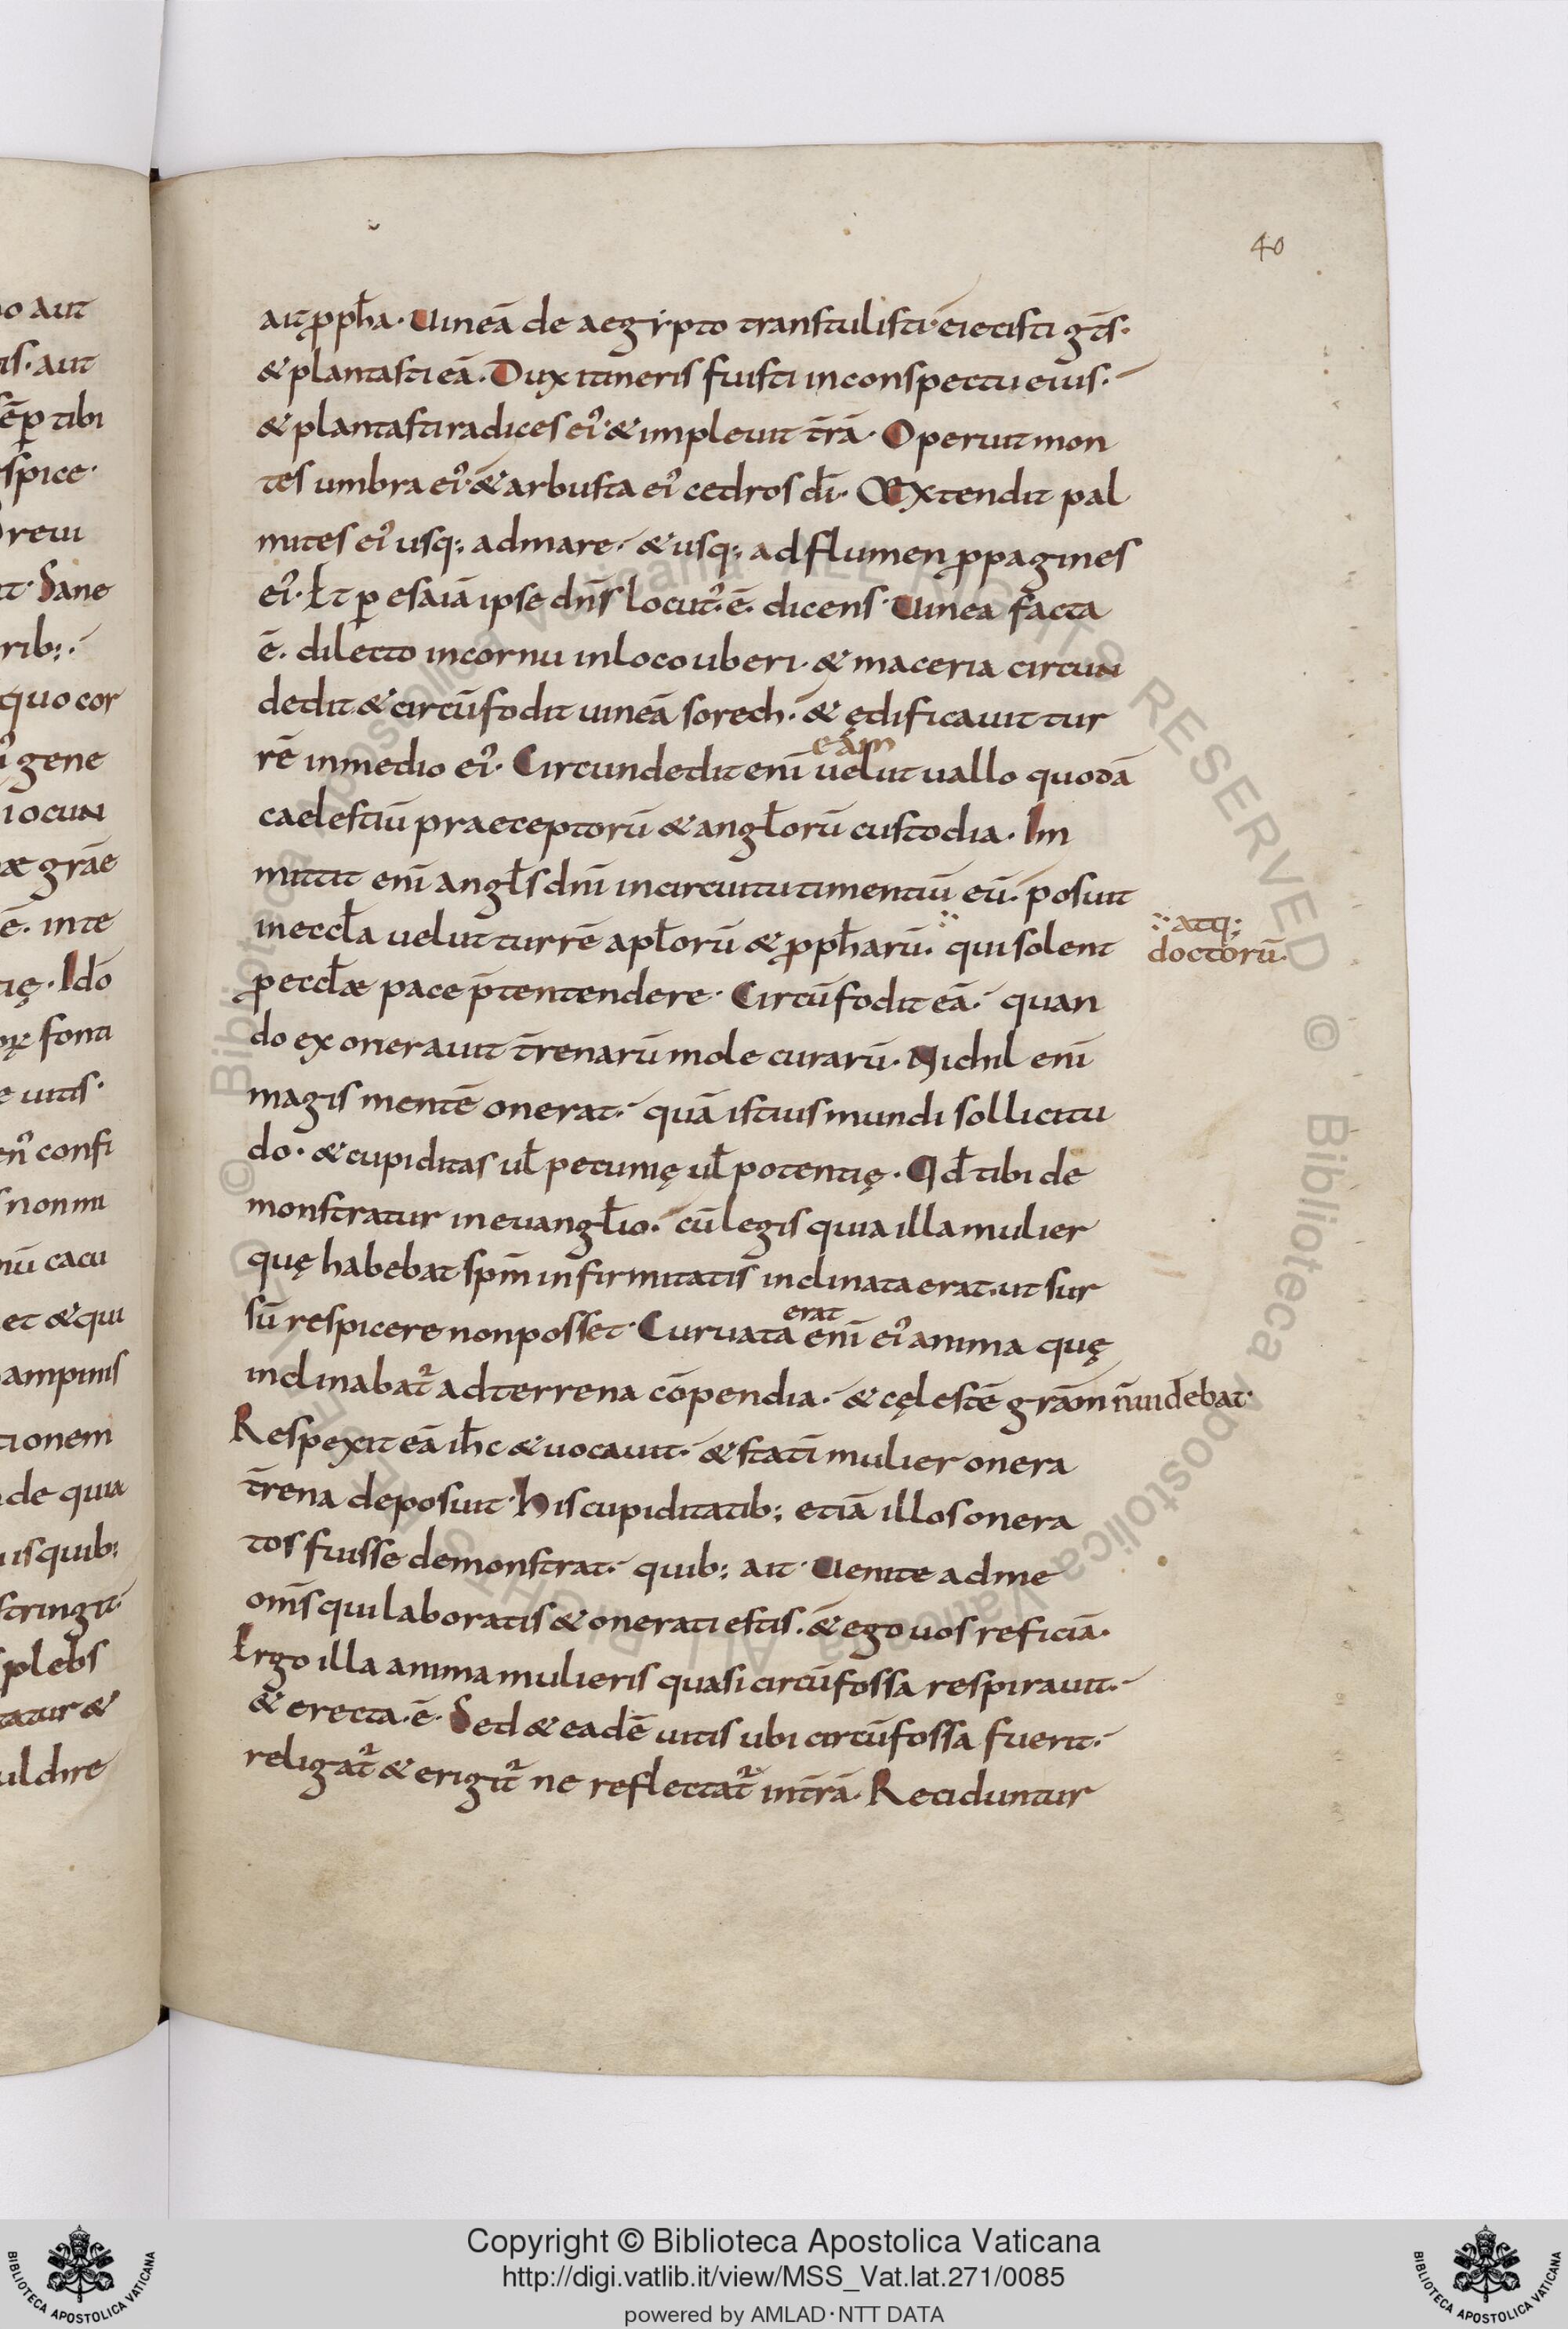 40
ait ꝓph̄a. Uineā de aegẏpto transtulisti. eiecisti gēs.
& plantasti eā. Dux itineris fuisti inconspectu eius.
& plantasti radices ei᾿. & impleuit t̄rā. Operuit mon
tes umbra ei᾿. & arbusta ei᾿ cedros dī. Extendit pal
mites ei᾿ usq; admare. & usq; ad flumen ꝓpagines
ei᾿. Et ꝑ esaiā ipse dn̄s locut᾿. ē. dicens. Uinea facta
ē. dilecto incornu inloco uberi. & maceria circun
dedit & circūfodit uineā sorech. & ędificauit tur
eam
rē inmedio ei᾿. Circundedit enī uelut uallo quodā
caelestiū praeceptorū & angl̄orū custodia. Im
mittit enī angl̄s dn̄i incircuitu timentiū eū. posuit
ineccl̄a uelut turrē apl̄orū & ꝓph̄arū. qui solent
atq;
doctorū.
ꝓ eccl̄ae pace p̄tentendere. Circūfodit eā. quan
do exonerauit t̄renarū mole curarū. Nichil enī
magis mentē onerat. quā istius mundi sollicitu
do. & cupiditas ul̄ pecunię ul̄ potentię. Qd̄ tibi de
monstratur ineuangl̄io. cū legis quia illa mulier
quę habebat spm̄ infirmitatis inclinata erat. ut sur
erat
sū respicere nonposset. Curuata enī ei᾿ anima quę
inclinabat᾿ adterrena cōpendia. & cęlestē grām n̄ uidebat.
Respexit eā ih̄c & uocauit. & statī mulier onera
t̄rena deposuit. His cupiditatib; etiā illos onera
tos fuisse demonstrat. quib; ait. Uenite adme
om̄s qui laboratis & onerati estis. & ego uos reficiā.
Ergo illa anima mulieris quasi circūfossa respirauit.
& erecta. ē. Sed & eadē uitis ubi circūfossa fuerit.
religat᾿ & erigit᾿ ne reflectat᾿ int̄rā. Reciduntur
Copyright © Biblioteca Apostolica Vaticana
http://digi.vatlib.it/view/MSS_Vat.lat.271/0085
powered by AMLAD·NTT DATA
BIBLIOTECA APOSTOLICA VATICANA
BIBLIOTECA APOSTOLICA VATICANA